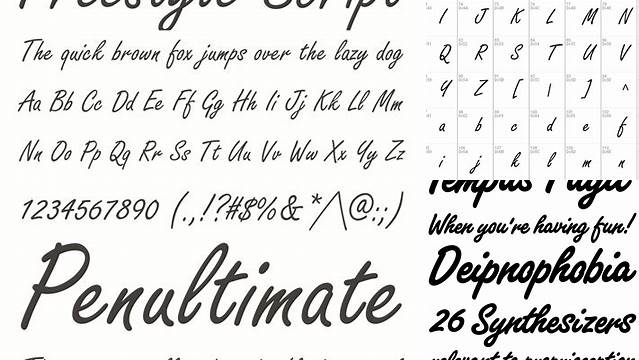 Freestyle Script
The quick brown fox jumps over the lazy dog
Aa Bb Cc Dd Ee Ff Gg Hh Ii Jj Kk Ll Mm
Nn Oo Pp Qq Rr Ss Tt Uu Vv Ww Xx Yy Zz
1234567890 (.,!?#$%&*/\@:;)
Penultimate
I J K L M N
Q R S T U V
Y Z [ \ ] ^
a b c d e f
i j k l m n
Tempus Fugit
When you're having fun!
Deipnophobia
26 Synthesizers
relevant to proprioception